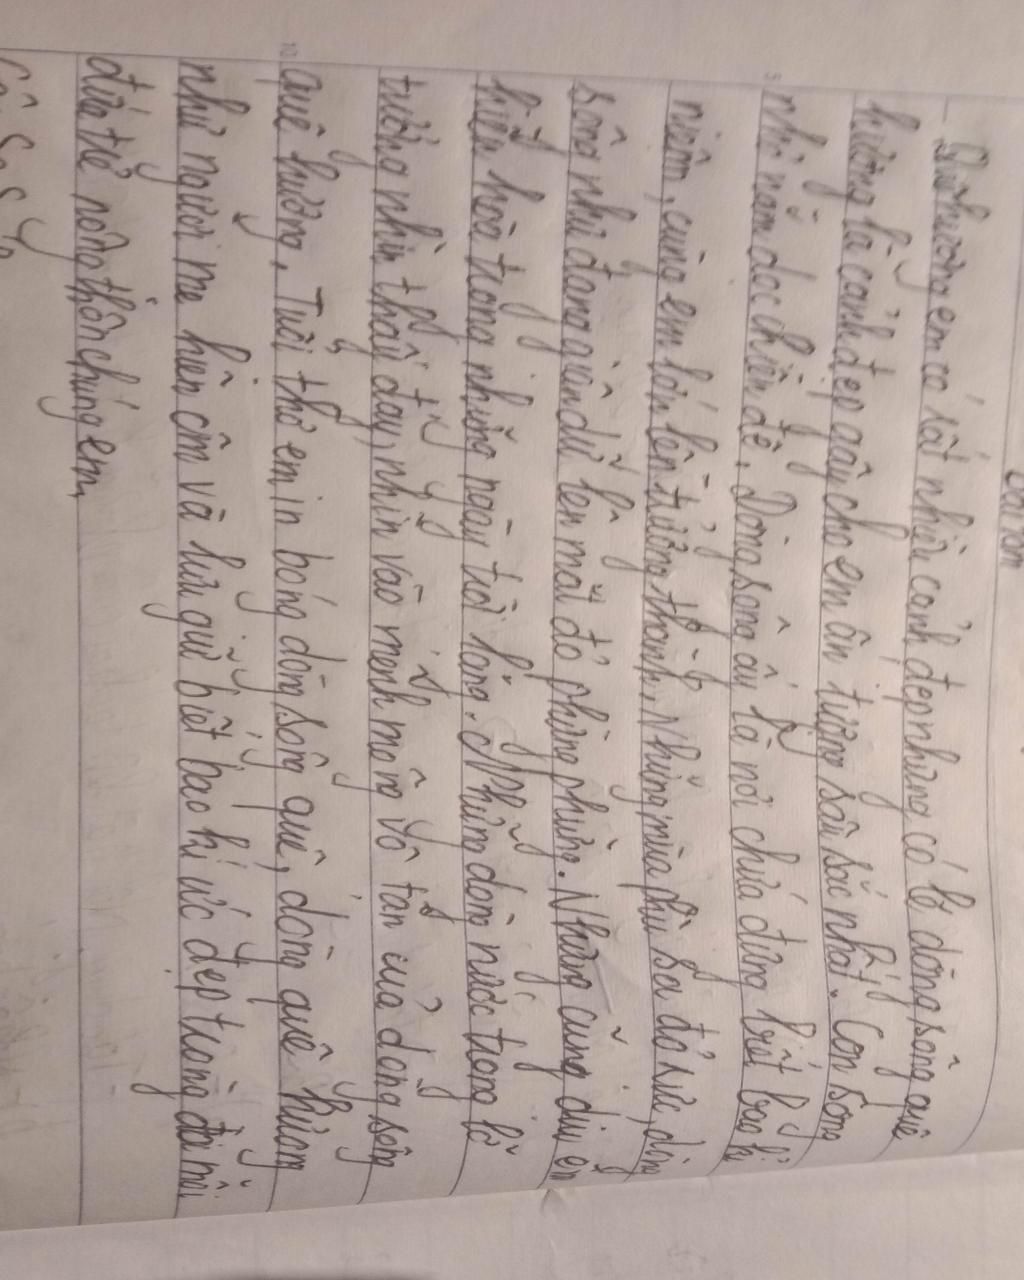 Bài làm
Quê hương em có rất nhiều cảnh đẹp nhưng có lẽ dòng sông quê
hương là cảnh đẹp gây cho em ấn tượng sâu sắc nhất. Con sông
nhỏ nằm dọc chiền đê. Dòng sông ấy là nơi chứa đựng biết bao kỉ
niệm, cùng em lớn lên trưởng thành. Những mùa phù sa đỏ rực, dòng
sông như đang giận dữ lên mặt đỏ phừng phừng. Nhưng cũng dịu êm
hiền hoà trong những ngày trời lặng. Những dòng nước trong lờ
tưởng nhìn thấu đáy, nhìn vào mênh mông vô tận của dòng sông
quê hương. Tuổi thơ em in bóng dòng sông quê, dòng quê hương
như người mẹ hiền ôm và lưu giữ biết bao kí ức đẹp trong đời mỗi
đứa trẻ nông thôn chúng em.